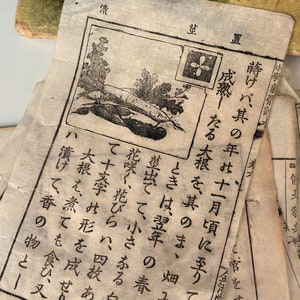 莖
蒔けバ、其の年の十一月頃に至りて
成熟したる大根を、其のまゝ、畑
ときは、翌年の春
莖出でて、小さなる白
花咲く、花びらハ、四枚あ
て十文字の形を成せり
大根ハ、煮ても食ひ、又
ハ漬けて香の物と